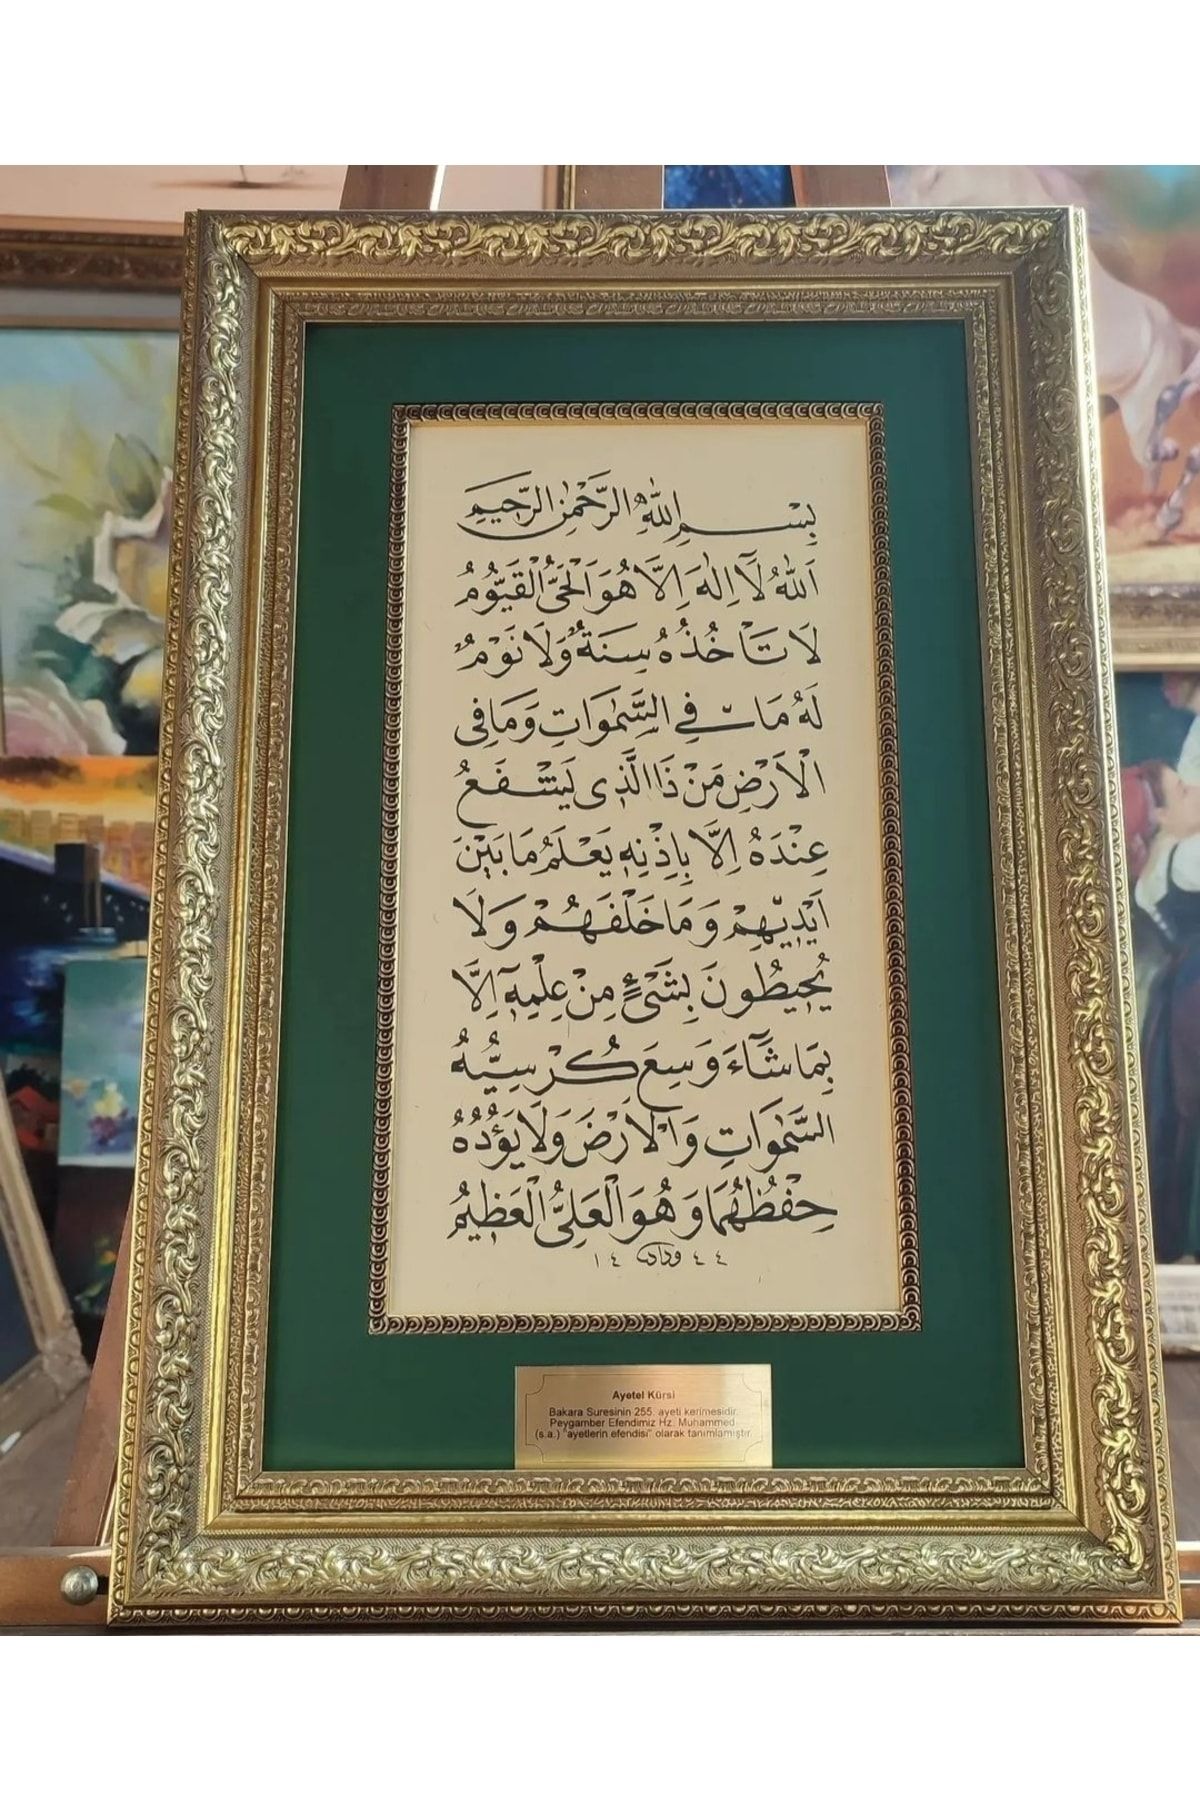 بِسْمِ اللّٰهِ الرَّحْمٰنِ الرَّحِيمِ
اَللّٰهُ لَآ اِلٰهَ اِلَّا هُوَ اَلْحَىُّ الْقَيُّومُ
لَا تَاْخُذُهُ سِنَةٌ وَلَا نَوْمٌ
لَهُ مَا فِي السَّمٰوَاتِ وَمَا فِى
الْاَرْضِ مَنْ ذَا الَّذِى يَشْفَعُ
عِنْدَهُ اِلَّا بِاِذْنِهٖ يَعْلَمُ مَا بَيْنَ
اَيْدٖيهِمْ وَمَا خَلْفَهُمْ وَلَا
يُحٖيطُونَ بِشَىْءٍ مِنْ عِلْمِهٖٓ اِلَّا
بِمَا شَآءَ وَسِعَ كُرْسِيُّهُ
السَّمٰوَاتِ وَالْاَرْضَ وَلَا يَؤُدُهُ
حِفْظُهُمَا وَهُوَ الْعَلِىُّ الْعَظٖيمُ
١٤ وداد ٤٤
Ayetel Kürsi
Bakara Suresinin 255. ayeti kerimesidir.
Peygamber Efendimiz Hz. Muhammed
(s.a.) "ayetlerin efendisi" olarak tanımlamıştır.